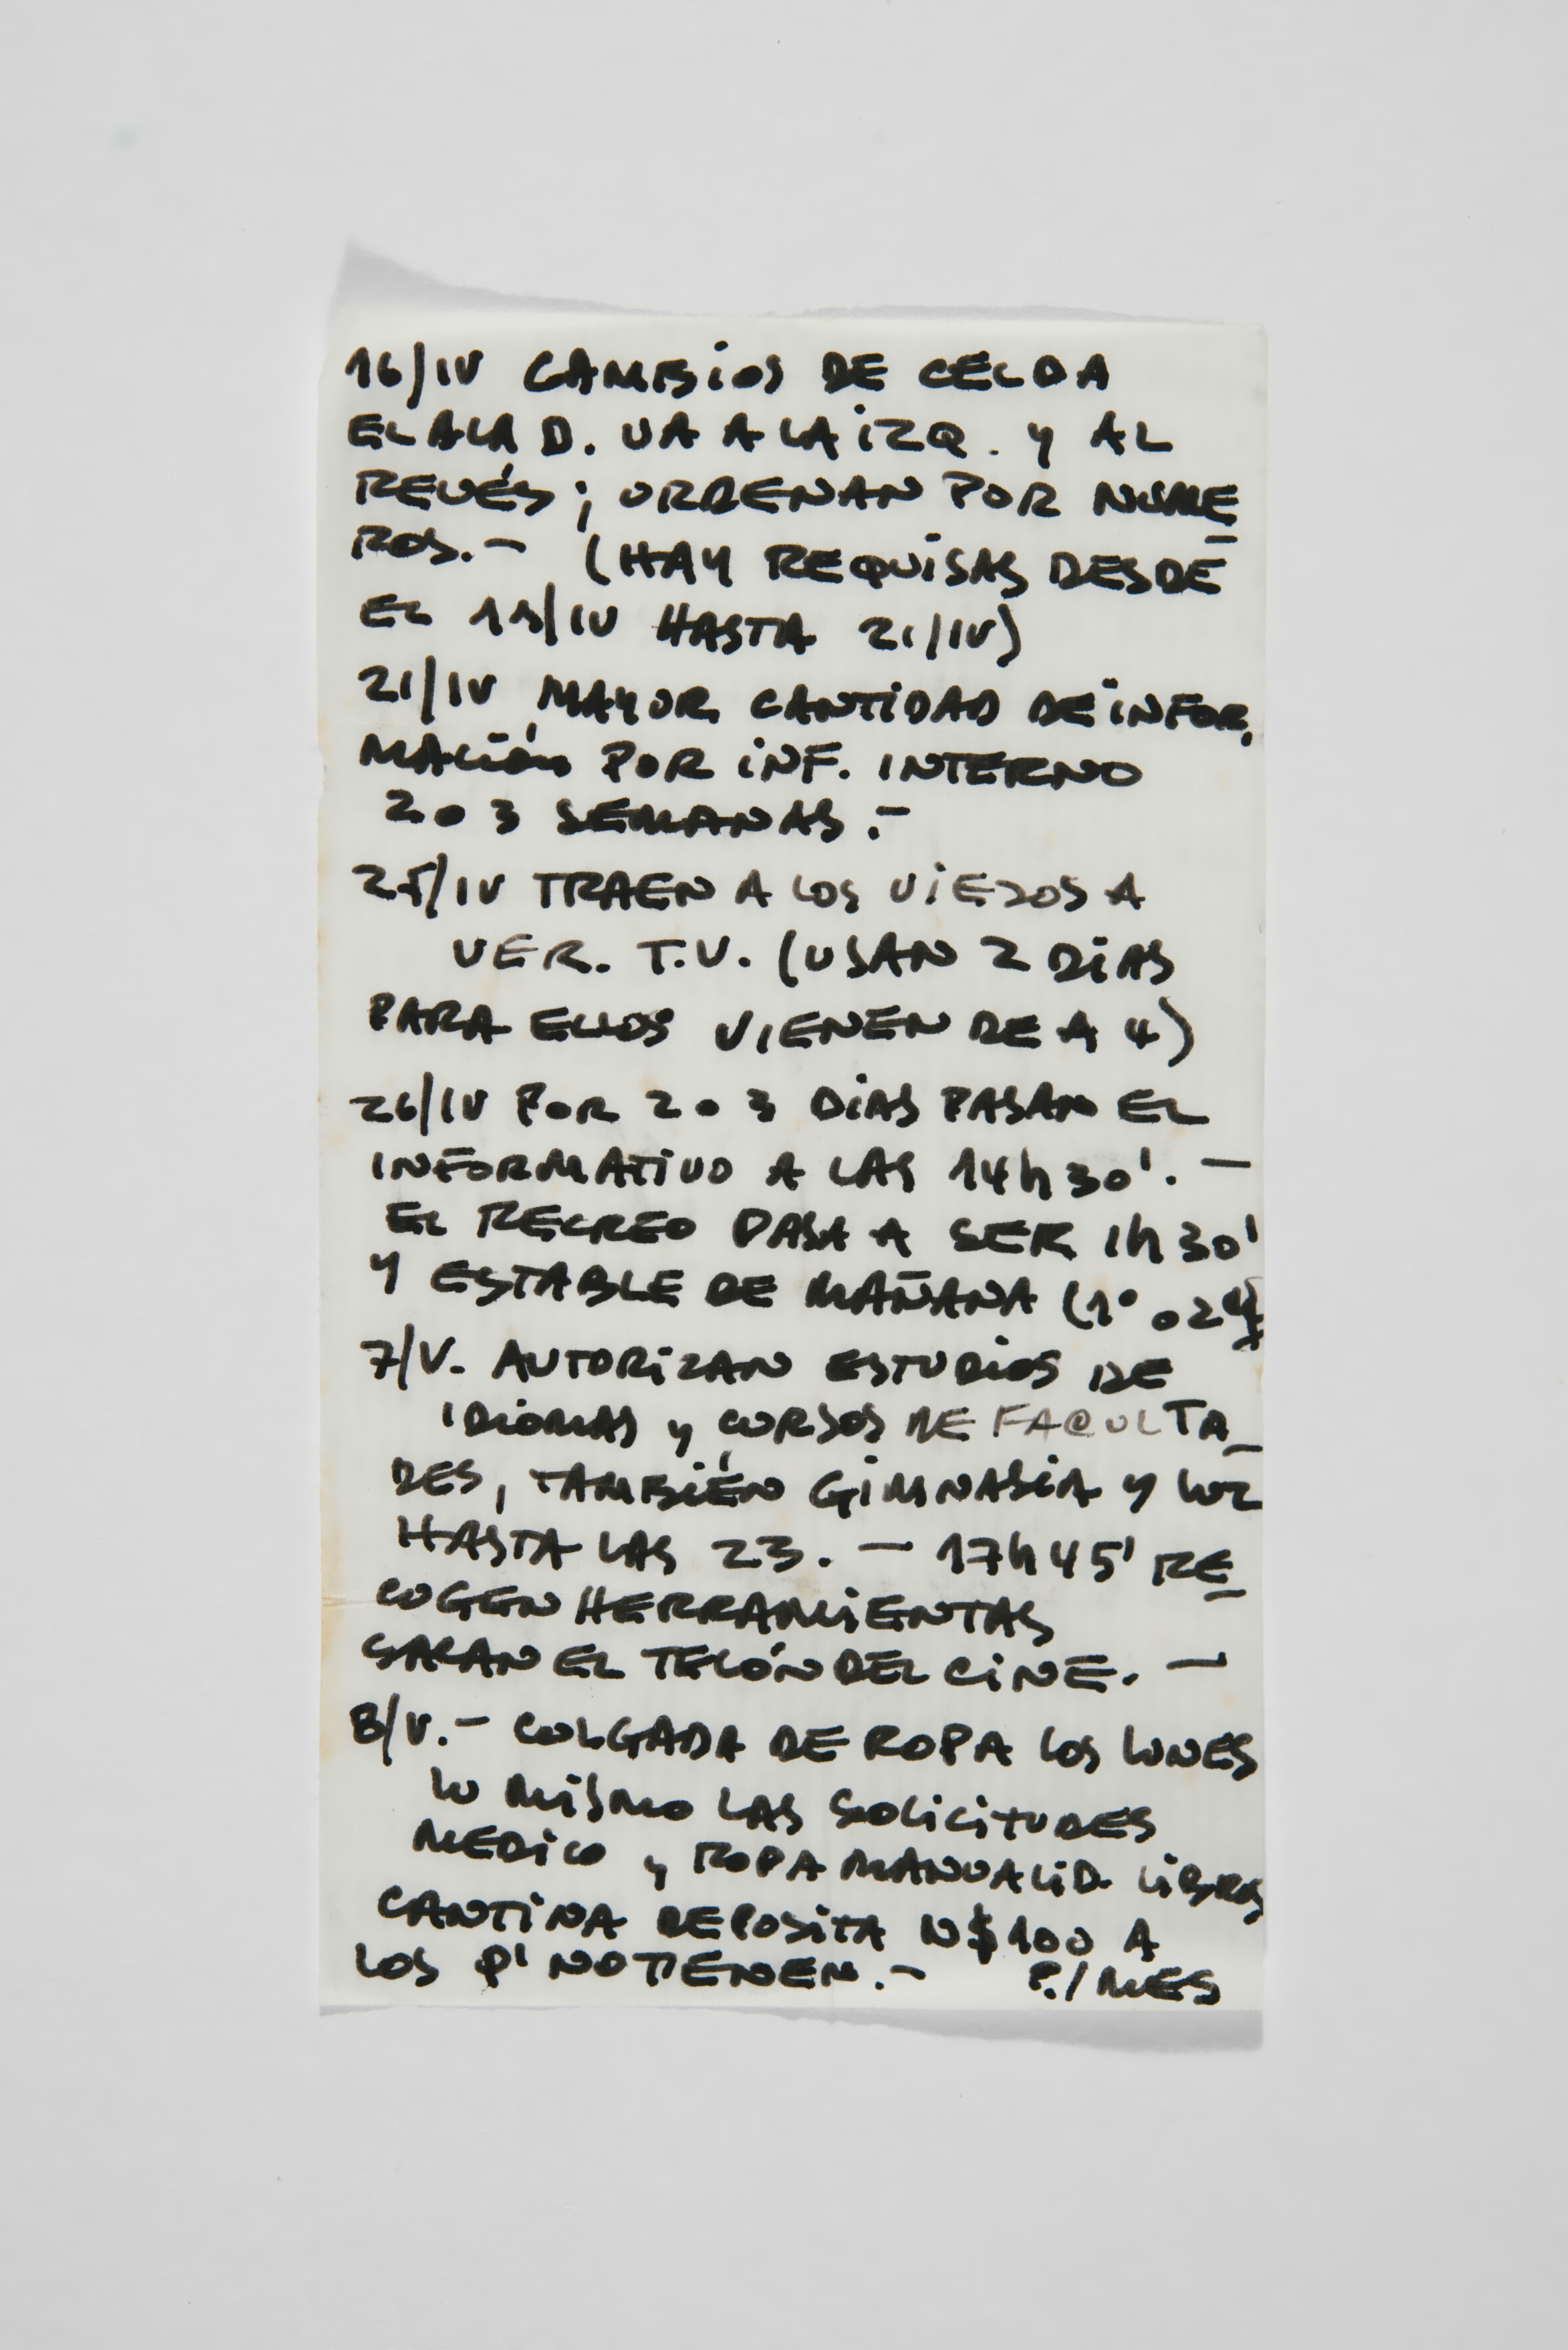 16/IV CAMBIOS DE CELDA
EL ALA D. VA A LA IZQ. Y AL
REVÉS; ORDENAN POR NUME
ROS.- (HAY REQUISAS DESDE
EL 11/IV HASTA 21/IV)
21/IV MAYOR CANTIDAD DE INFOR,
MACIÓN POR INF. INTERNO
2 o 3 SEMANAS.-
25/IV TRAEN A LOS VIEJOS A
VER. T.V. (USAN 2 DIAS
PARA ELLOS VIENEN DE A 4)
26/IV POR 2 o 3 DIAS PASAN EL
INFORMATIVO A LAS 14h30'.-
EL RECREO PASA A SER 1h30'
Y ESTABLE DE MAÑANA (1° o 2°)
7/V. AUTORIZAN ESTUDIOS DE
IDIOMAS Y CURSOS DE FACULTA_
DES, TAMBIÉN GIMNASIA Y LUZ
HASTA LAS 23.- 17h45' RE
COGEN HERRAMIENTAS
SACAN EL TELÓN DEL CINE.-
8/V.- COLGADA DE ROPA LOS LUNES
LO MISMO LAS SOLICITUDES
MEDICO Y ROPA MANUALID. LIBROS
CANTINA DEPOSITA N$100 A
LOS Q' NO TIENEN.- P./MES